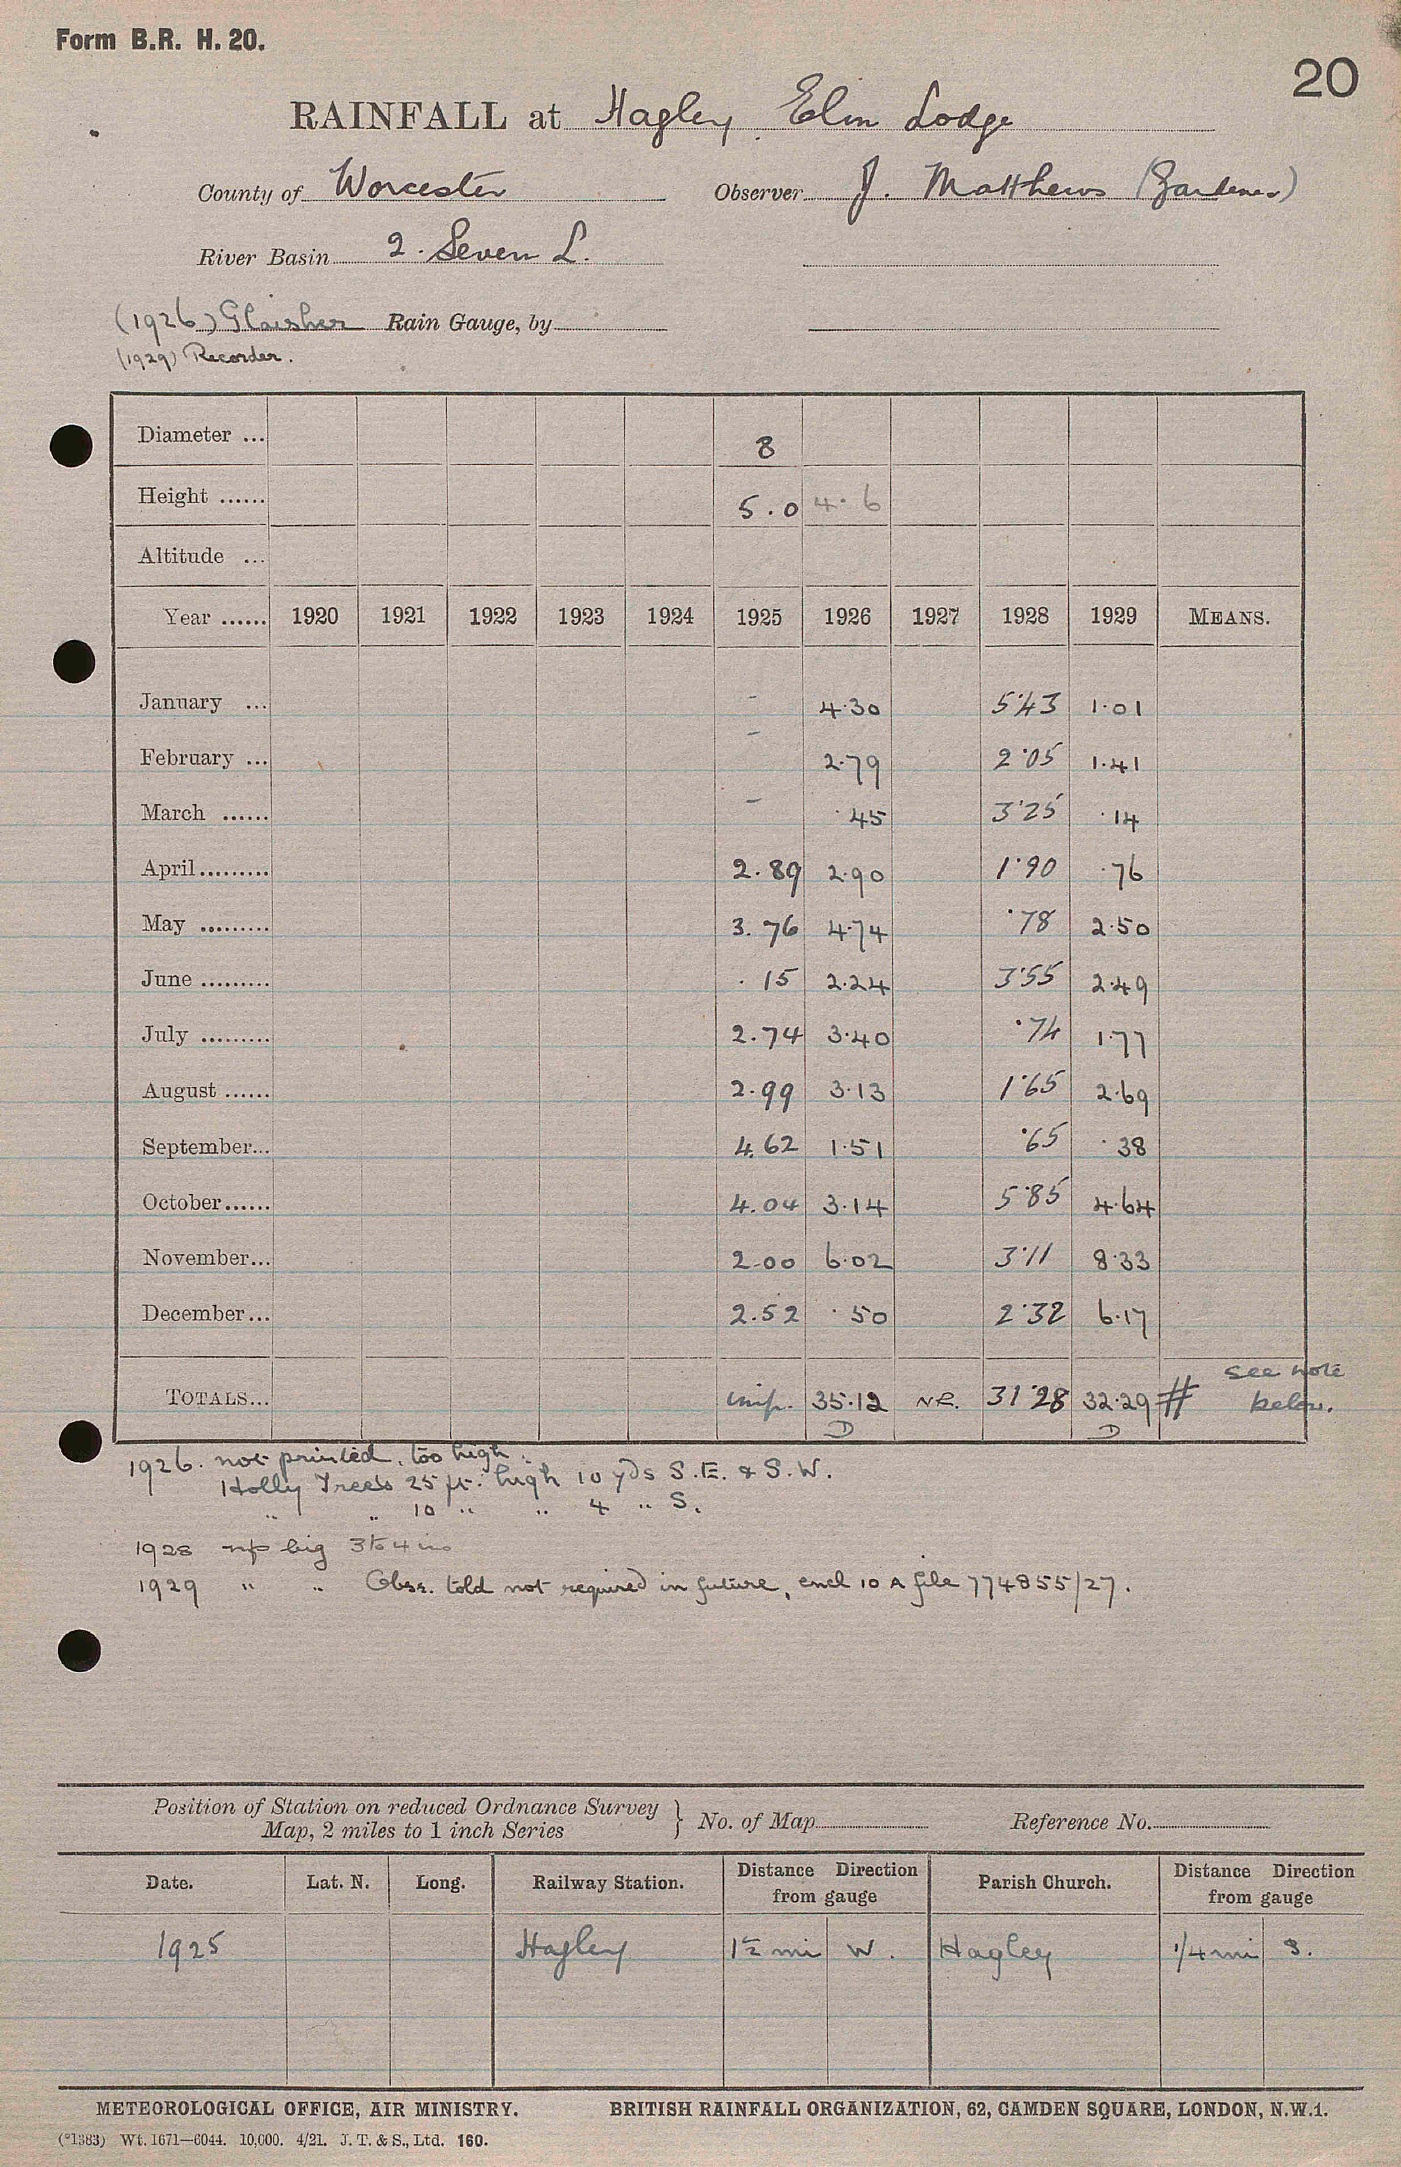 Form B.R. H. 20.
20
RAINFALL at Hagley, Elm Lodge
County of Worcester Observer J. Matthews (Gardener)
River Basin 2. Severn L.
(1926) Glaisher Rain Gauge, by
(1929) Recorder.
Diameter ... 8
Height ...... 5.0 4.6
Altitude ...
Year ...... 1920 1921 1922 1923 1924 1925 1926 1927 1928 1929 MEANS.
January ... - 4.30 5.43 1.01
February ... - 2.79 2.05 1.41
March ...... - .45 3.25 .14
April ......... 2.89 2.90 1.90 .76
May ......... 3.76 4.74 .78 2.50
June ......... .15 2.24 3.55 2.49
July ......... 2.74 3.40 .74 1.77
August ...... 2.99 3.13 1.65 2.69
September... 4.62 1.51 .65 .38
October...... 4.04 3.14 5.85 4.64
November... 2.00 6.02 3.11 8.33
December... 2.52 .50 2.32 6.17
TOTALS... imp. 35.12 N.R. 31.28 32.29 # see note below.
D D
1926. not printed, too high.
Holly Trees 25 ft. high 10 yds S.E. & S.W.
" " 10 " " 4 " S.
1928 np big 3 to 4 ins
1929 " " Obsr. told not required in future, encl 10 A file 774855/27.
Position of Station on reduced Ordnance Survey Map, 2 miles to 1 inch Series } No. of Map Reference No.
Date. Lat. N. Long. Railway Station. Distance Direction from gauge Parish Church. Distance Direction from gauge
1925 Hagley 1½ mi W. Hagley 1/4 mi S.
METEOROLOGICAL OFFICE, AIR MINISTRY. BRITISH RAINFALL ORGANIZATION, 62, CAMDEN SQUARE, LONDON, N.W.1.
(*1383) Wt. 1671—6044. 10,000. 4/21. J. T. & S., Ltd. 160.